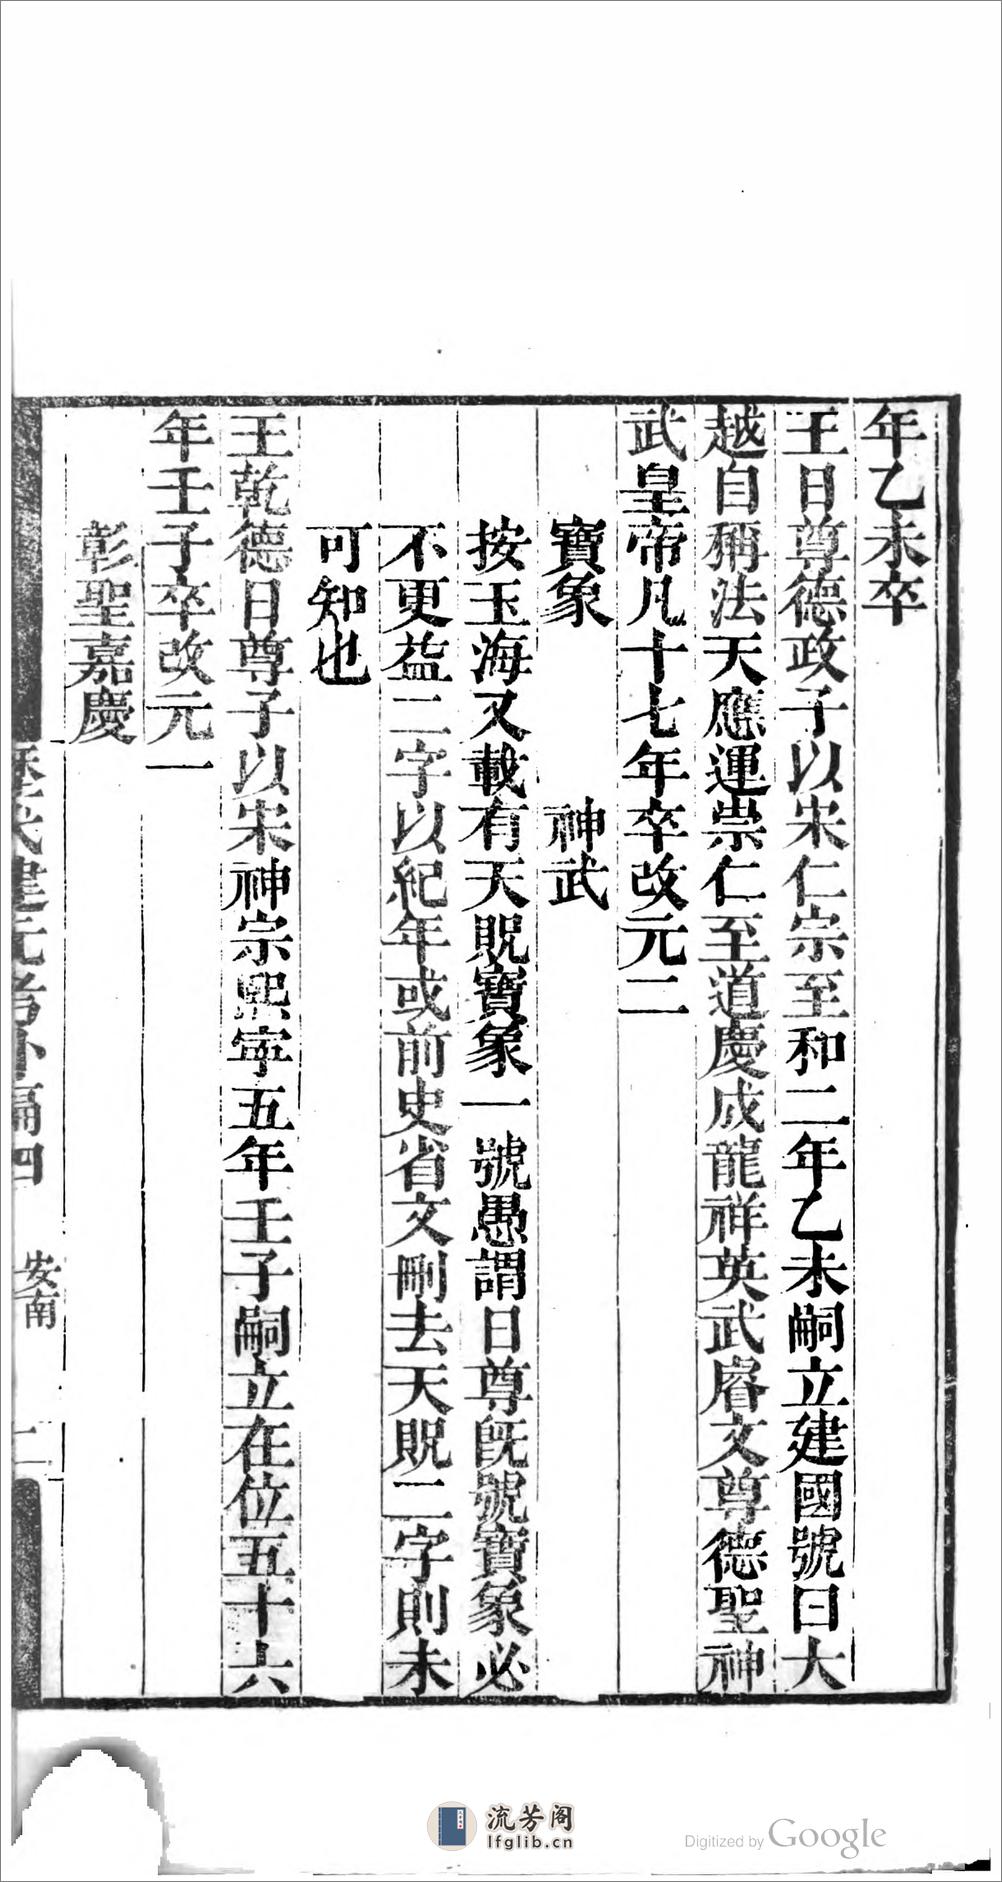 年乙未卒
王日尊德政子以宋仁宗至和二年乙未嗣立建國號曰大
越自稱法天應運崇仁至道慶成龍祥英武睿文尊德聖神
武皇帝凡十七年卒改元二
寶象　神武
按玉海又載有天貺寶象一號愚謂日尊旣號寶象必
不更益二字以紀年或前史省文刪去天貺二字則未
可知也
王乾德日尊子以宋神宗熙寧五年壬子嗣立在位五十六
年壬子卒改元一
彰聖嘉慶
歷代建元考外編四
安南
二
流芳阁
lfglib.cn
Digitized by Google